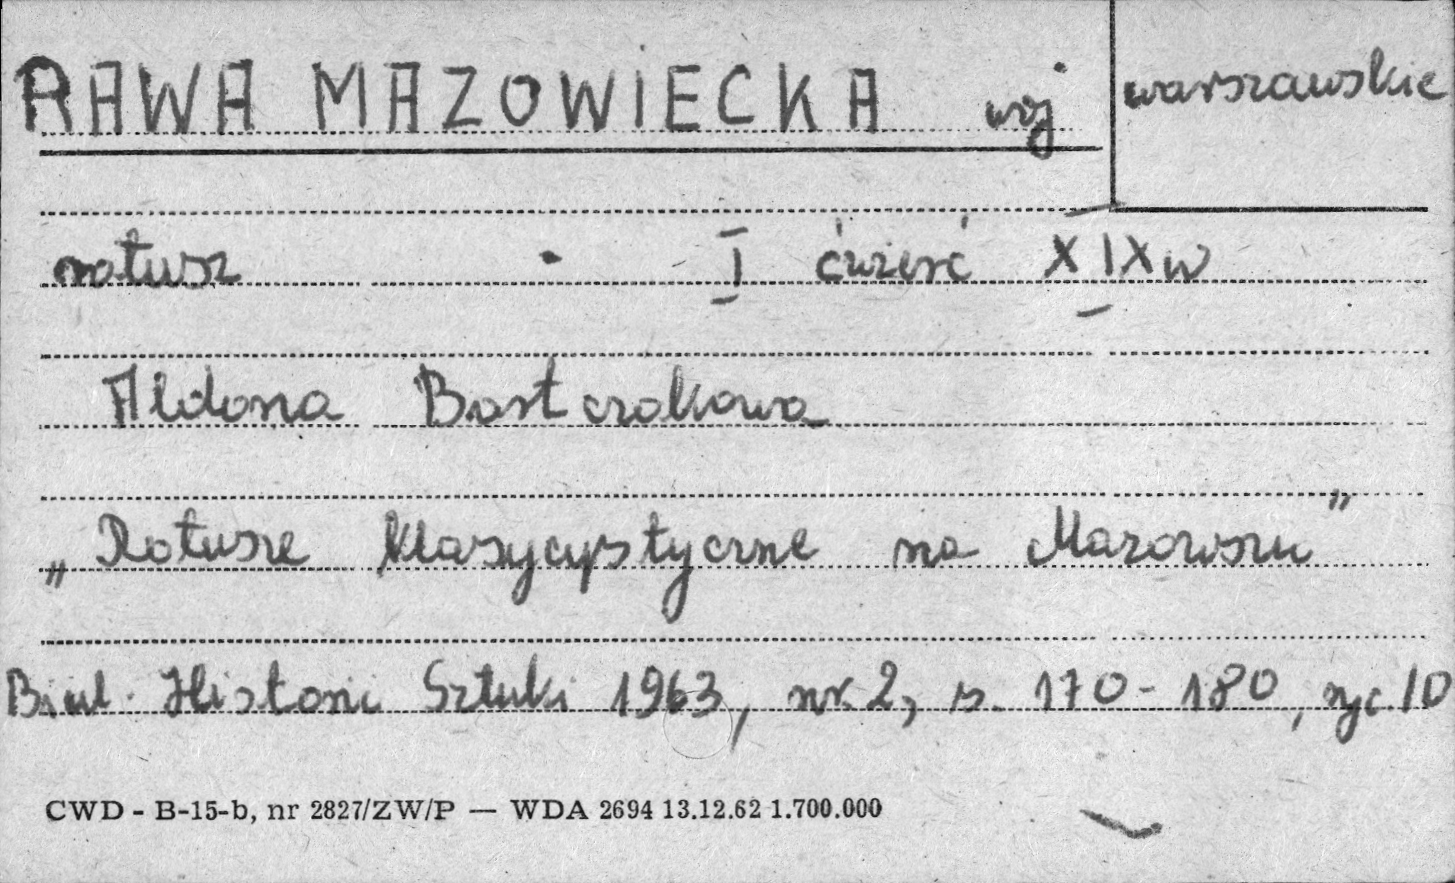 RAWA MAZOWIECKA woj warszawskie
ratusz I ćwierć XIX w
Aldona Bartczakowa
„Ratusze klasycystyczne na Mazowszu”
Biul. Historii Sztuki 1963, nr 2, s. 170-180, ryc. 10
CWD - B-15-b, nr 2827/ZW/P — WDA 2694 13.12.62 1.700.000